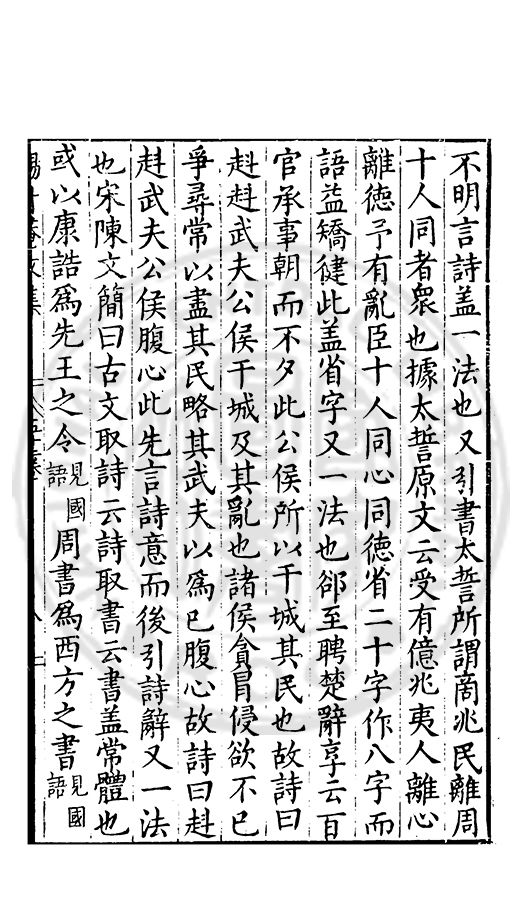 不明言詩盖一法也又引書太誓所謂商兆民離周
十人同者衆也據太誓原文云受有億兆夷人離心
離德予有亂臣十人同心同德省二十字作八字而
語益矯健此盖省字又一法也郤至聘楚辭享云百
官承事朝而不夕此公侯所以干城其民也故詩曰
赳赳武夫公侯干城及其亂也諸侯貪冒侵欲不已
爭尋常以盡其民略其武夫以爲已腹心故詩曰赳
赳武夫公侯腹心此先言詩意而後引詩辭又一法
也宋陳文簡曰古文取詩云詩取書云書盖常體也
或以康誥爲先王之令見國語周書爲西方之書見國語